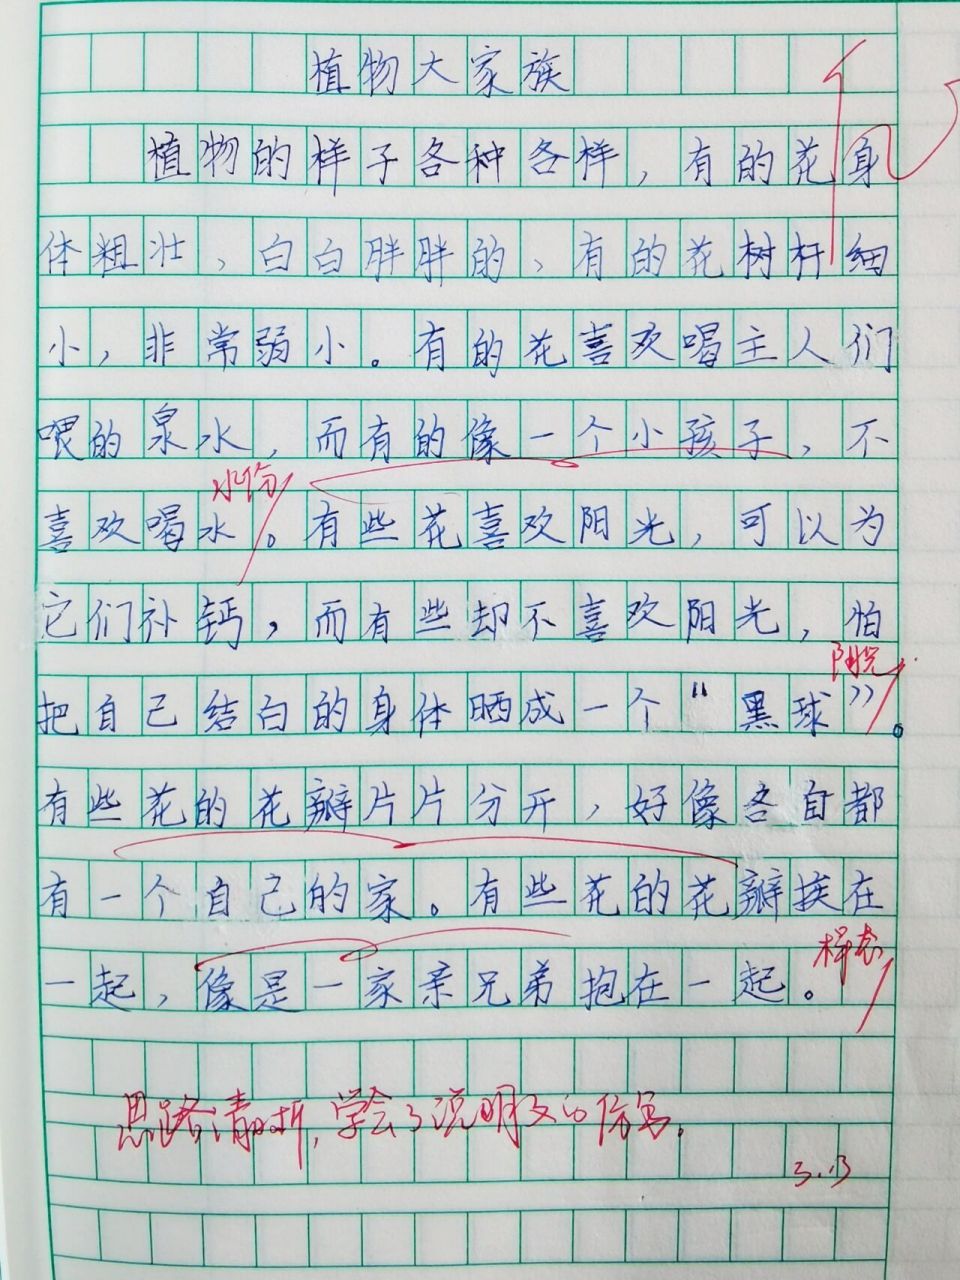 植物大家族
植物的样子各种各样，有的花身
体粗壮，白白胖胖的、有的花树杆细
小，非常弱小。有的花喜欢喝主人们
喂的泉水，而有的像一个小孩子，不
水份
喜欢喝水。有些花喜欢阳光，可以为
它们补钙，而有些却不喜欢阳光，怕
阳光
把自己结白的身体晒成一个“黑球”。
有些花的花瓣片片分开，好像各自都
有一个自己的家。有些花的花瓣挨在
样态
一起，像是一家亲兄弟抱在一起。
思路清晰，学会了说明文的仿写。
3.13